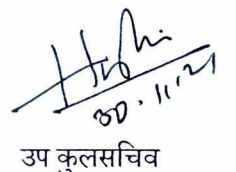 30.11.21
उप कुलसचिव